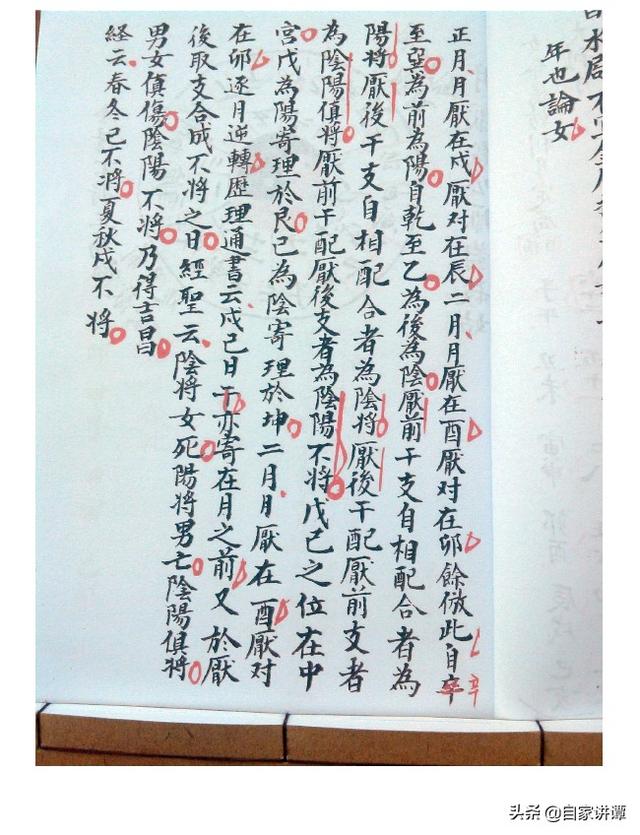 年也論女
正月月厭在戌厭对在辰二月月厭在酉厭对在卯餘倣此自辛
至巽為前為陽自乾至乙為後為陰厭前干支自相配合者為
陽將厭後干支自相配合者為陰將厭後干配厭前支者
為陰陽俱將厭前干配厭後支者為陰陽不將戊己之位在中
宮戊為陽寄理於艮己為陰寄理於坤二月月厭在酉厭对
在卯逐月逆轉歷理通書云戊己日干亦寄在月之前又於厭
後取支合成不將之日經聖云陰將女死陽將男亡陰陽俱將
男女俱傷陰陽不將乃得吉昌
經云春冬己不將夏秋戊不將
头条 @自家讲谭